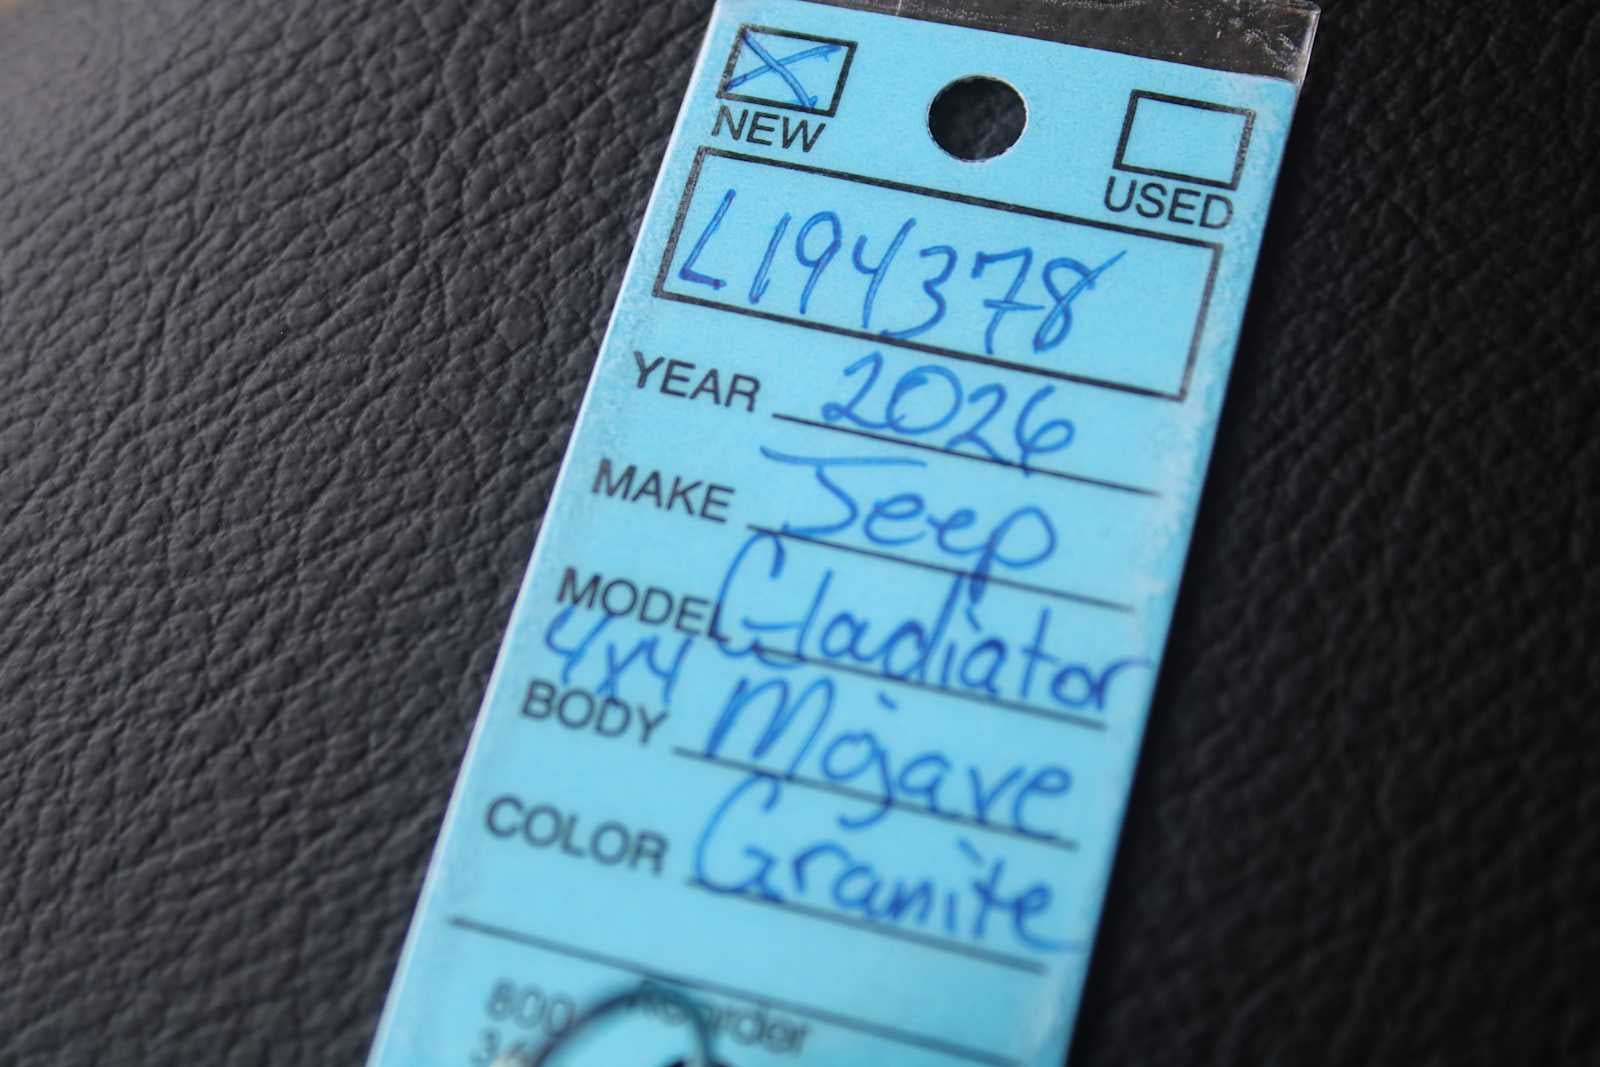 NEW USED
L194378
YEAR 2026
MAKE Jeep
MODEL Gladiator
4x4
BODY Mojave
COLOR Granite
800 Reorder